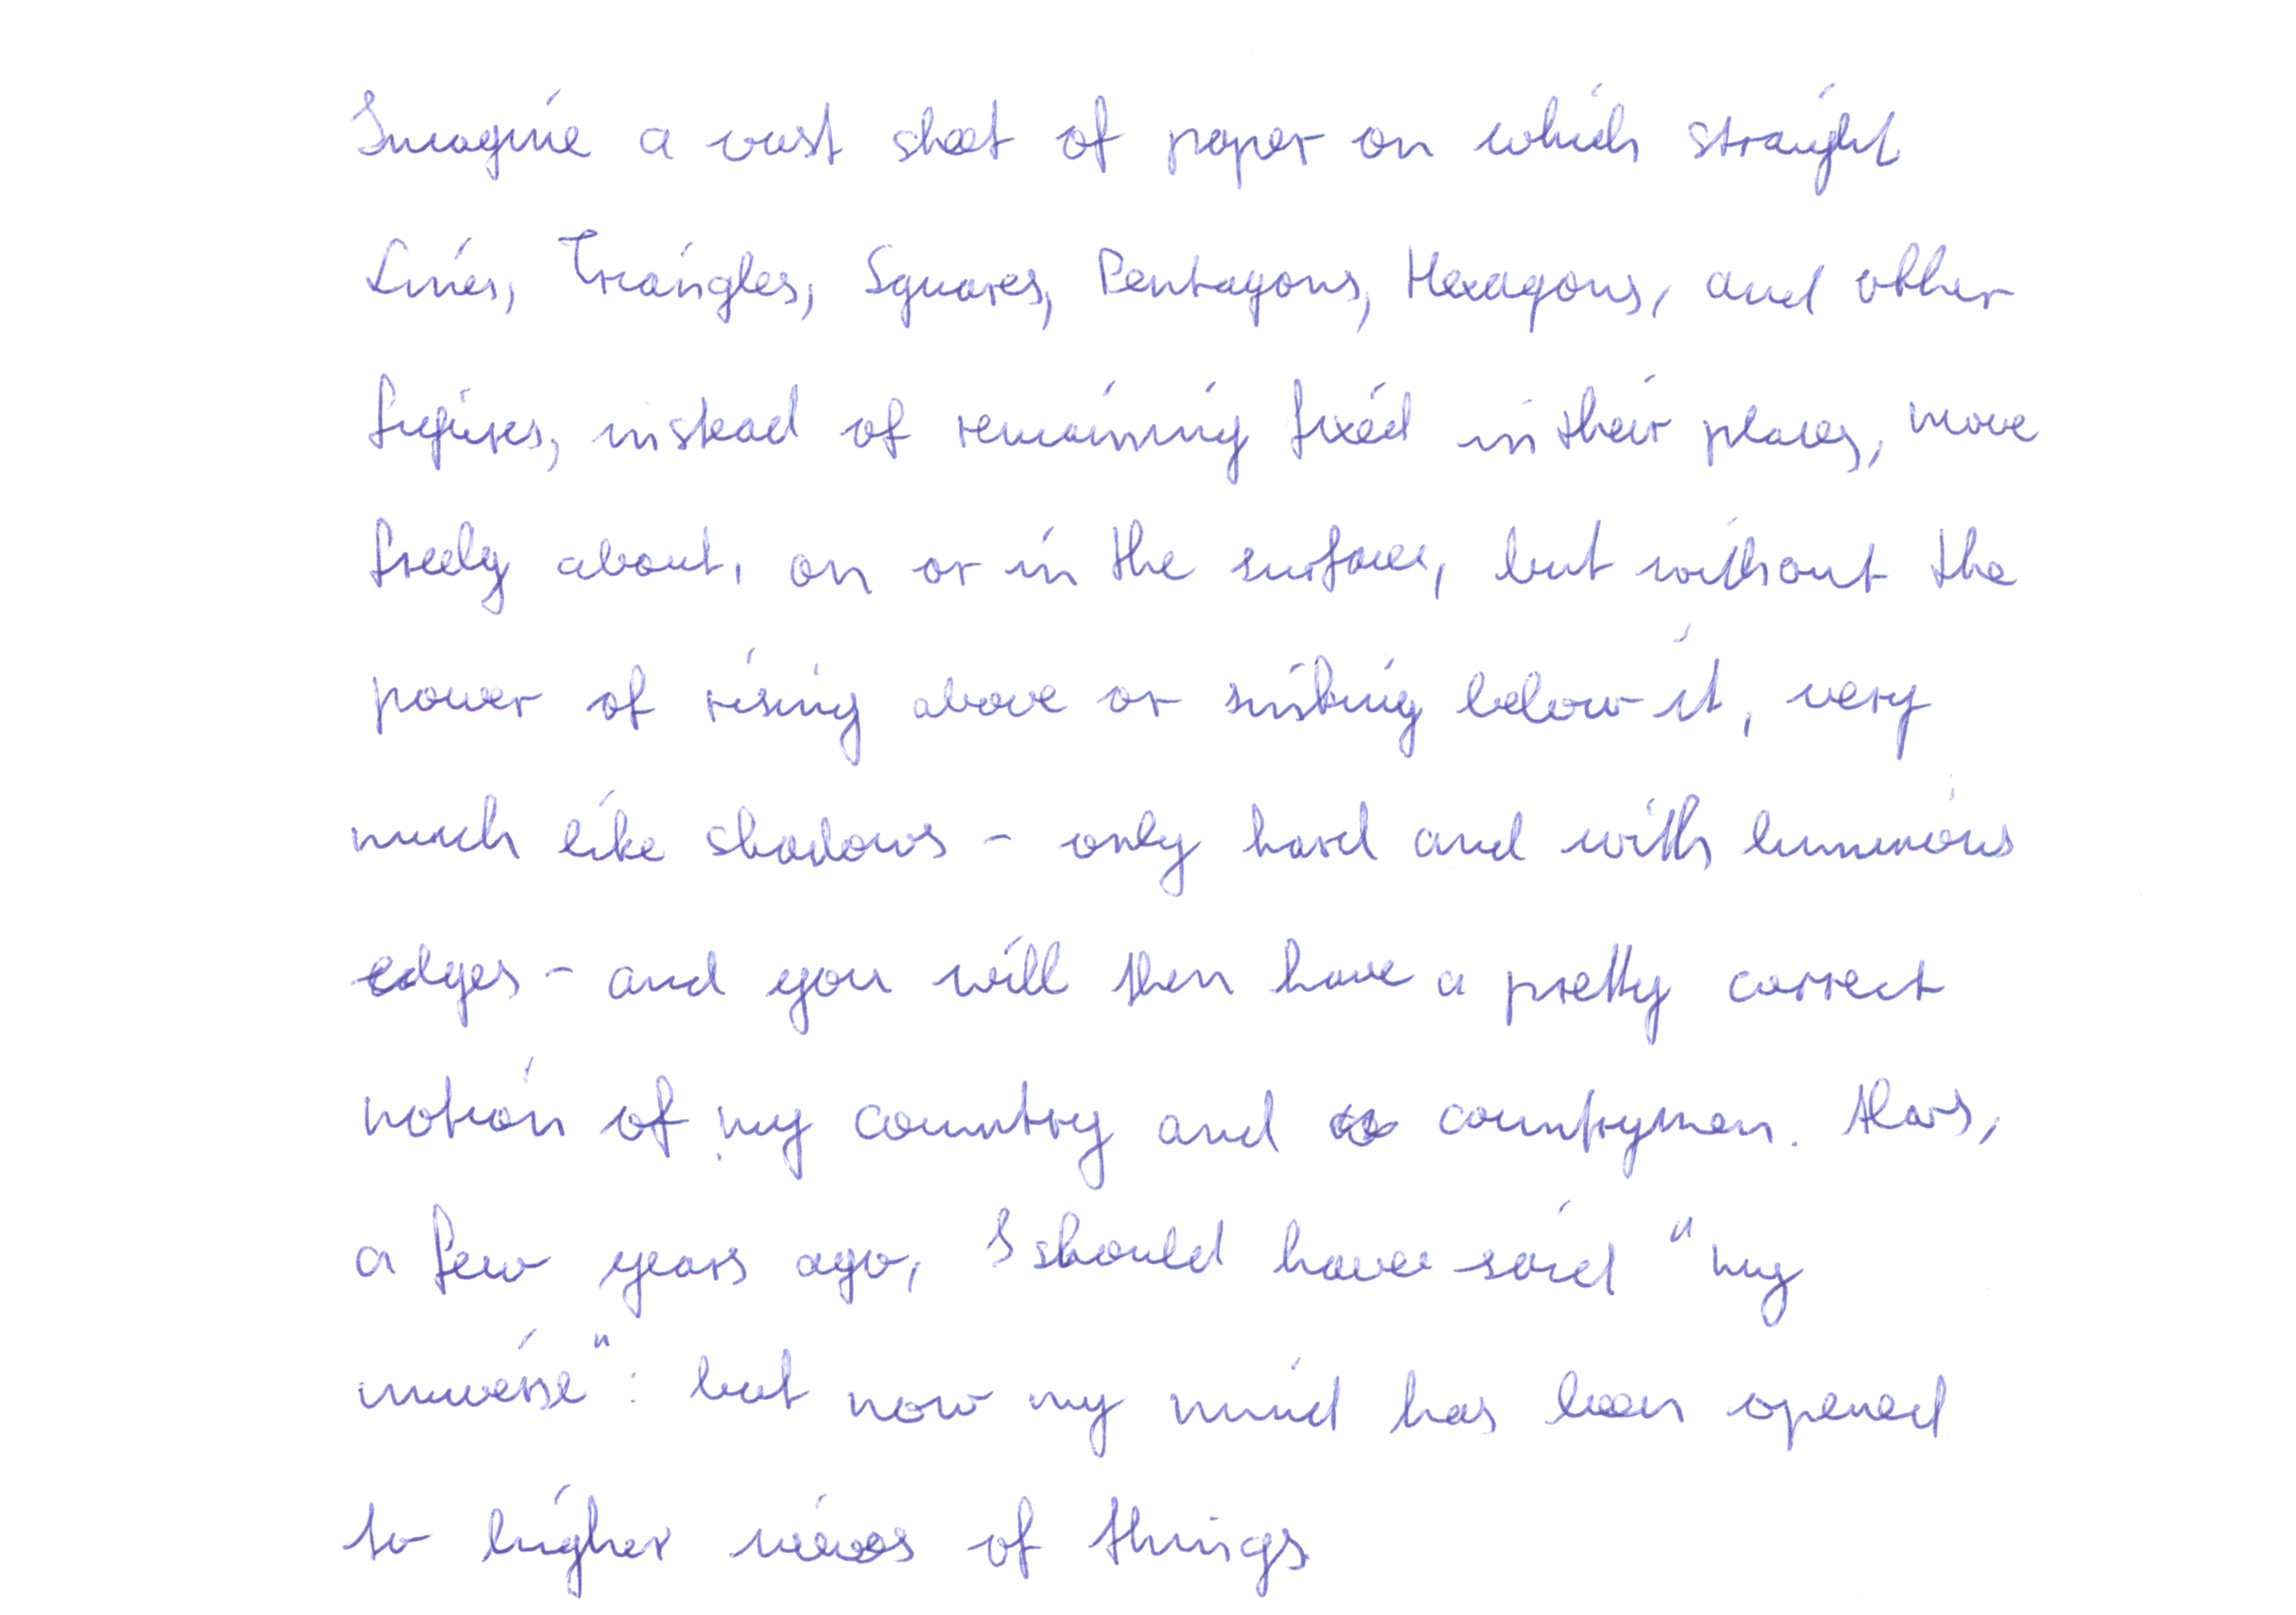 Imagine a vast sheet of paper on which straight
Lines, Triangles, Squares, Pentagons, Hexagons, and other
figures, instead of remaining fixed in their places, move
freely about, on or in the surface, but without the
power of rising above or sinking below it, very
much like shadows - only hard and with luminous
edges - and you will then have a pretty correct
notion of my country and countrymen. Alas,
a few years ago, I should have said "my
universe": but now my mind has been opened
to higher views of things